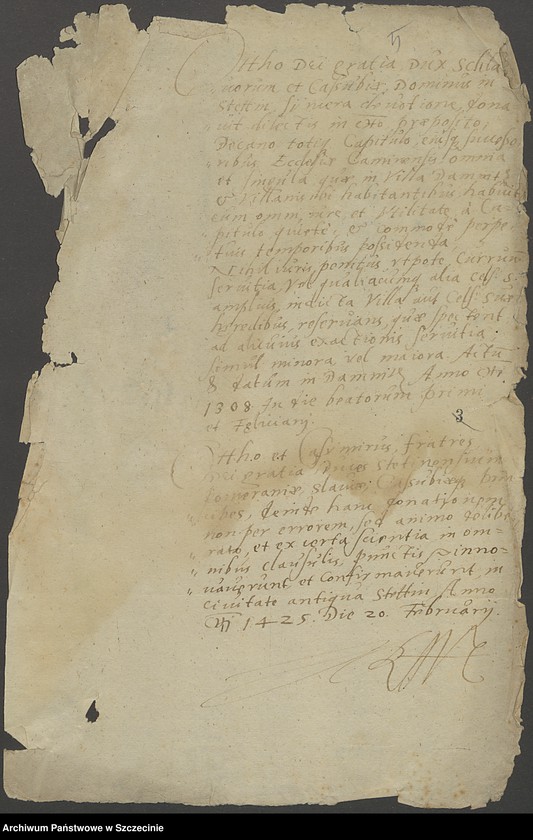 Ottho Dei gratia Dux Schla
vorum et Cassubiæ, Dominus in
Stettin, sincera devotione, dona
vit dilectis in Chro, præposito,
Decano totiq Capitulo, eiusq succeßo
ribus Ecclesiæ Caminensis omnia
et singula quæ in Villa Dammitz
& Villanis ibi habitantibus habuit
cum omni iure, et Vtilitate à Ca-
pitulo quietè, et commodè perpe
tuis temporibus possidenda,
Nihil iuris penitus vtpote, Curruum
servitia, Vel qualiacunq alia Cels: S:
amplius, in dicta Villa aut Cels: Suæ
hæredibus, reservans, quæ spectent
ad alicuius exactionis servitia
simul minora vel maiora. Actu
& datum in Dammis, Anno
1308 In die beatorum Primi
et Feliciani.
3
Ottho et Casimirus, fratres
Dei gratia, Duces Stetinensium
Pomeraniæ, Slaviæ, Cassubiæq Prin
cibes, deinde hanc donationem
non per errorem, sed animo delibe
rato, et ex certa scientia in om-
nibus clausulis, punctis, inno-
vaverunt et Confirmaverunt, in
Civitate antiqua Stettin, Anno
1425. Die 20. Februarij.
Archiwum Państwowe w Szczecinie